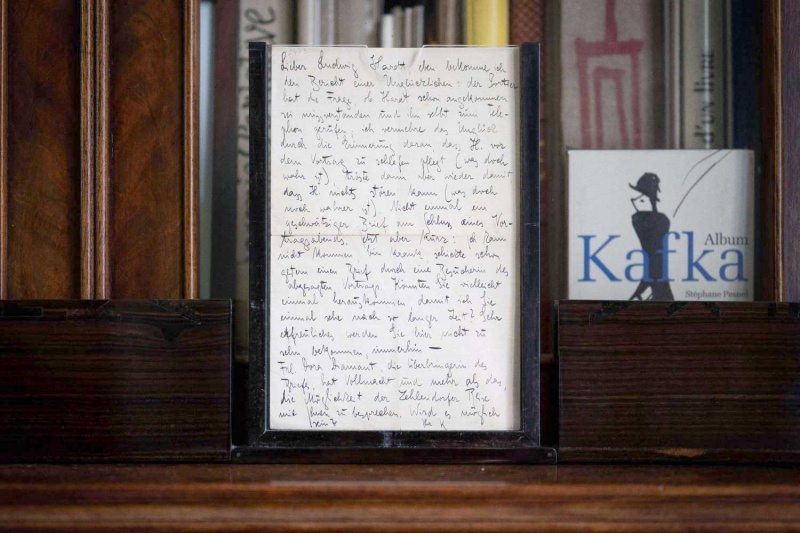 Lieber Ludwig Hardt eben bekomme ich
den Bericht einer Unglücklichen: der Portier
hat die Frage, ob Hardt schon angekommen
sei missverstanden und ihn selbst zum Tele-
phon gerufen, ich vermehre das Unglück
durch die Erinnerung daran dass H. vor
dem Vortrag zu schlafen pflegt (was doch
wahr ist) tröste dann aber wieder damit
dass H. nichts stören kann (was doch
noch wahrer ist) Nicht einmal ein
geschwätziger Brief am Schluss eines Vor-
tragsabends. Jetzt aber kurz: ich kann
nicht kommen bin krank, schickte schon
gestern einen Brief durch eine Besucherin des
Vortrags. Könnten Sie vielleicht
einmal herauskommen damit ich Sie
einmal sehe nach so langer Zeit? Sehr
erfreuliches werden Sie hier nicht zu
sehn bekommen, immerhin —
Frl. Dora Diamant, die Überbringerin des
Briefs, hat Vollmacht und mehr als das,
die Möglichkeit der Zehlendorfer Reise
mit Ihnen zu besprechen. Wird es möglich
sein?
Ihr K
Kafka
Album
Stéphane Pesnel